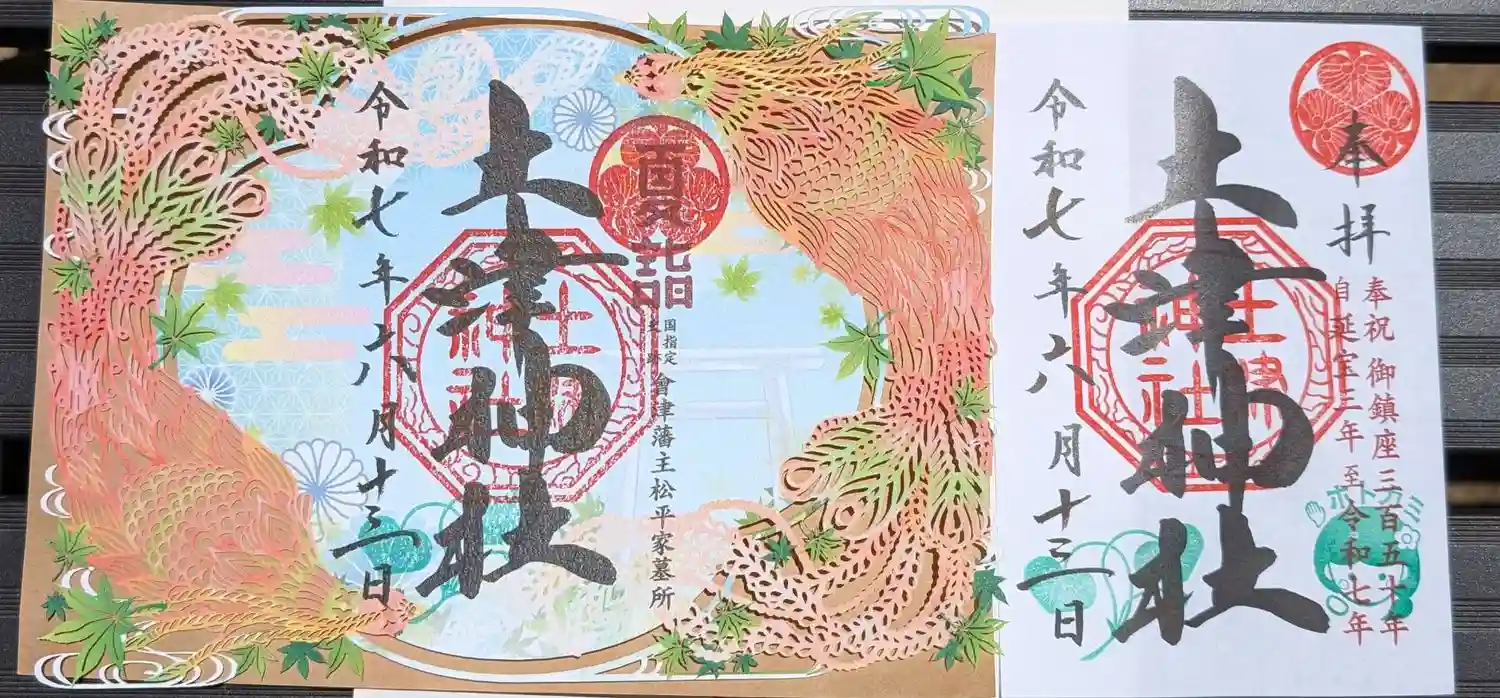 奉拝
奉祝 御鎮座三百五十年
自延宝三年 至令和七年
ホトカミ
土津神社
土津
神社
令和七年八月十三日
夏詣
国指定
史跡
會津藩主松平家墓所
土津神社
土津
神社
令和七年八月十三日